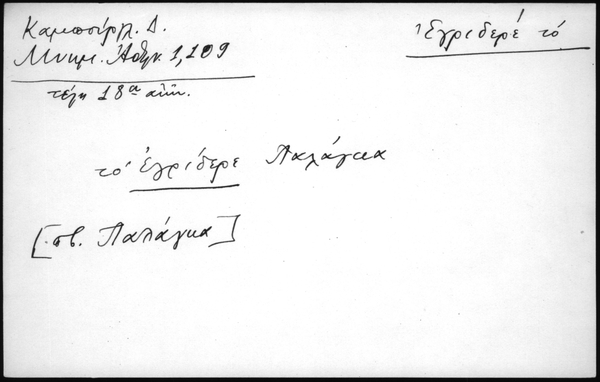 Καμπούρογλ. Δ.
Μνημ. Ἀθην. 1,109
τέλη 18α αἰῶν.
Ἐγριδερέ τό
τό Ἐγρίδερε Παλάγκα
[πβ. Παλάγκα]